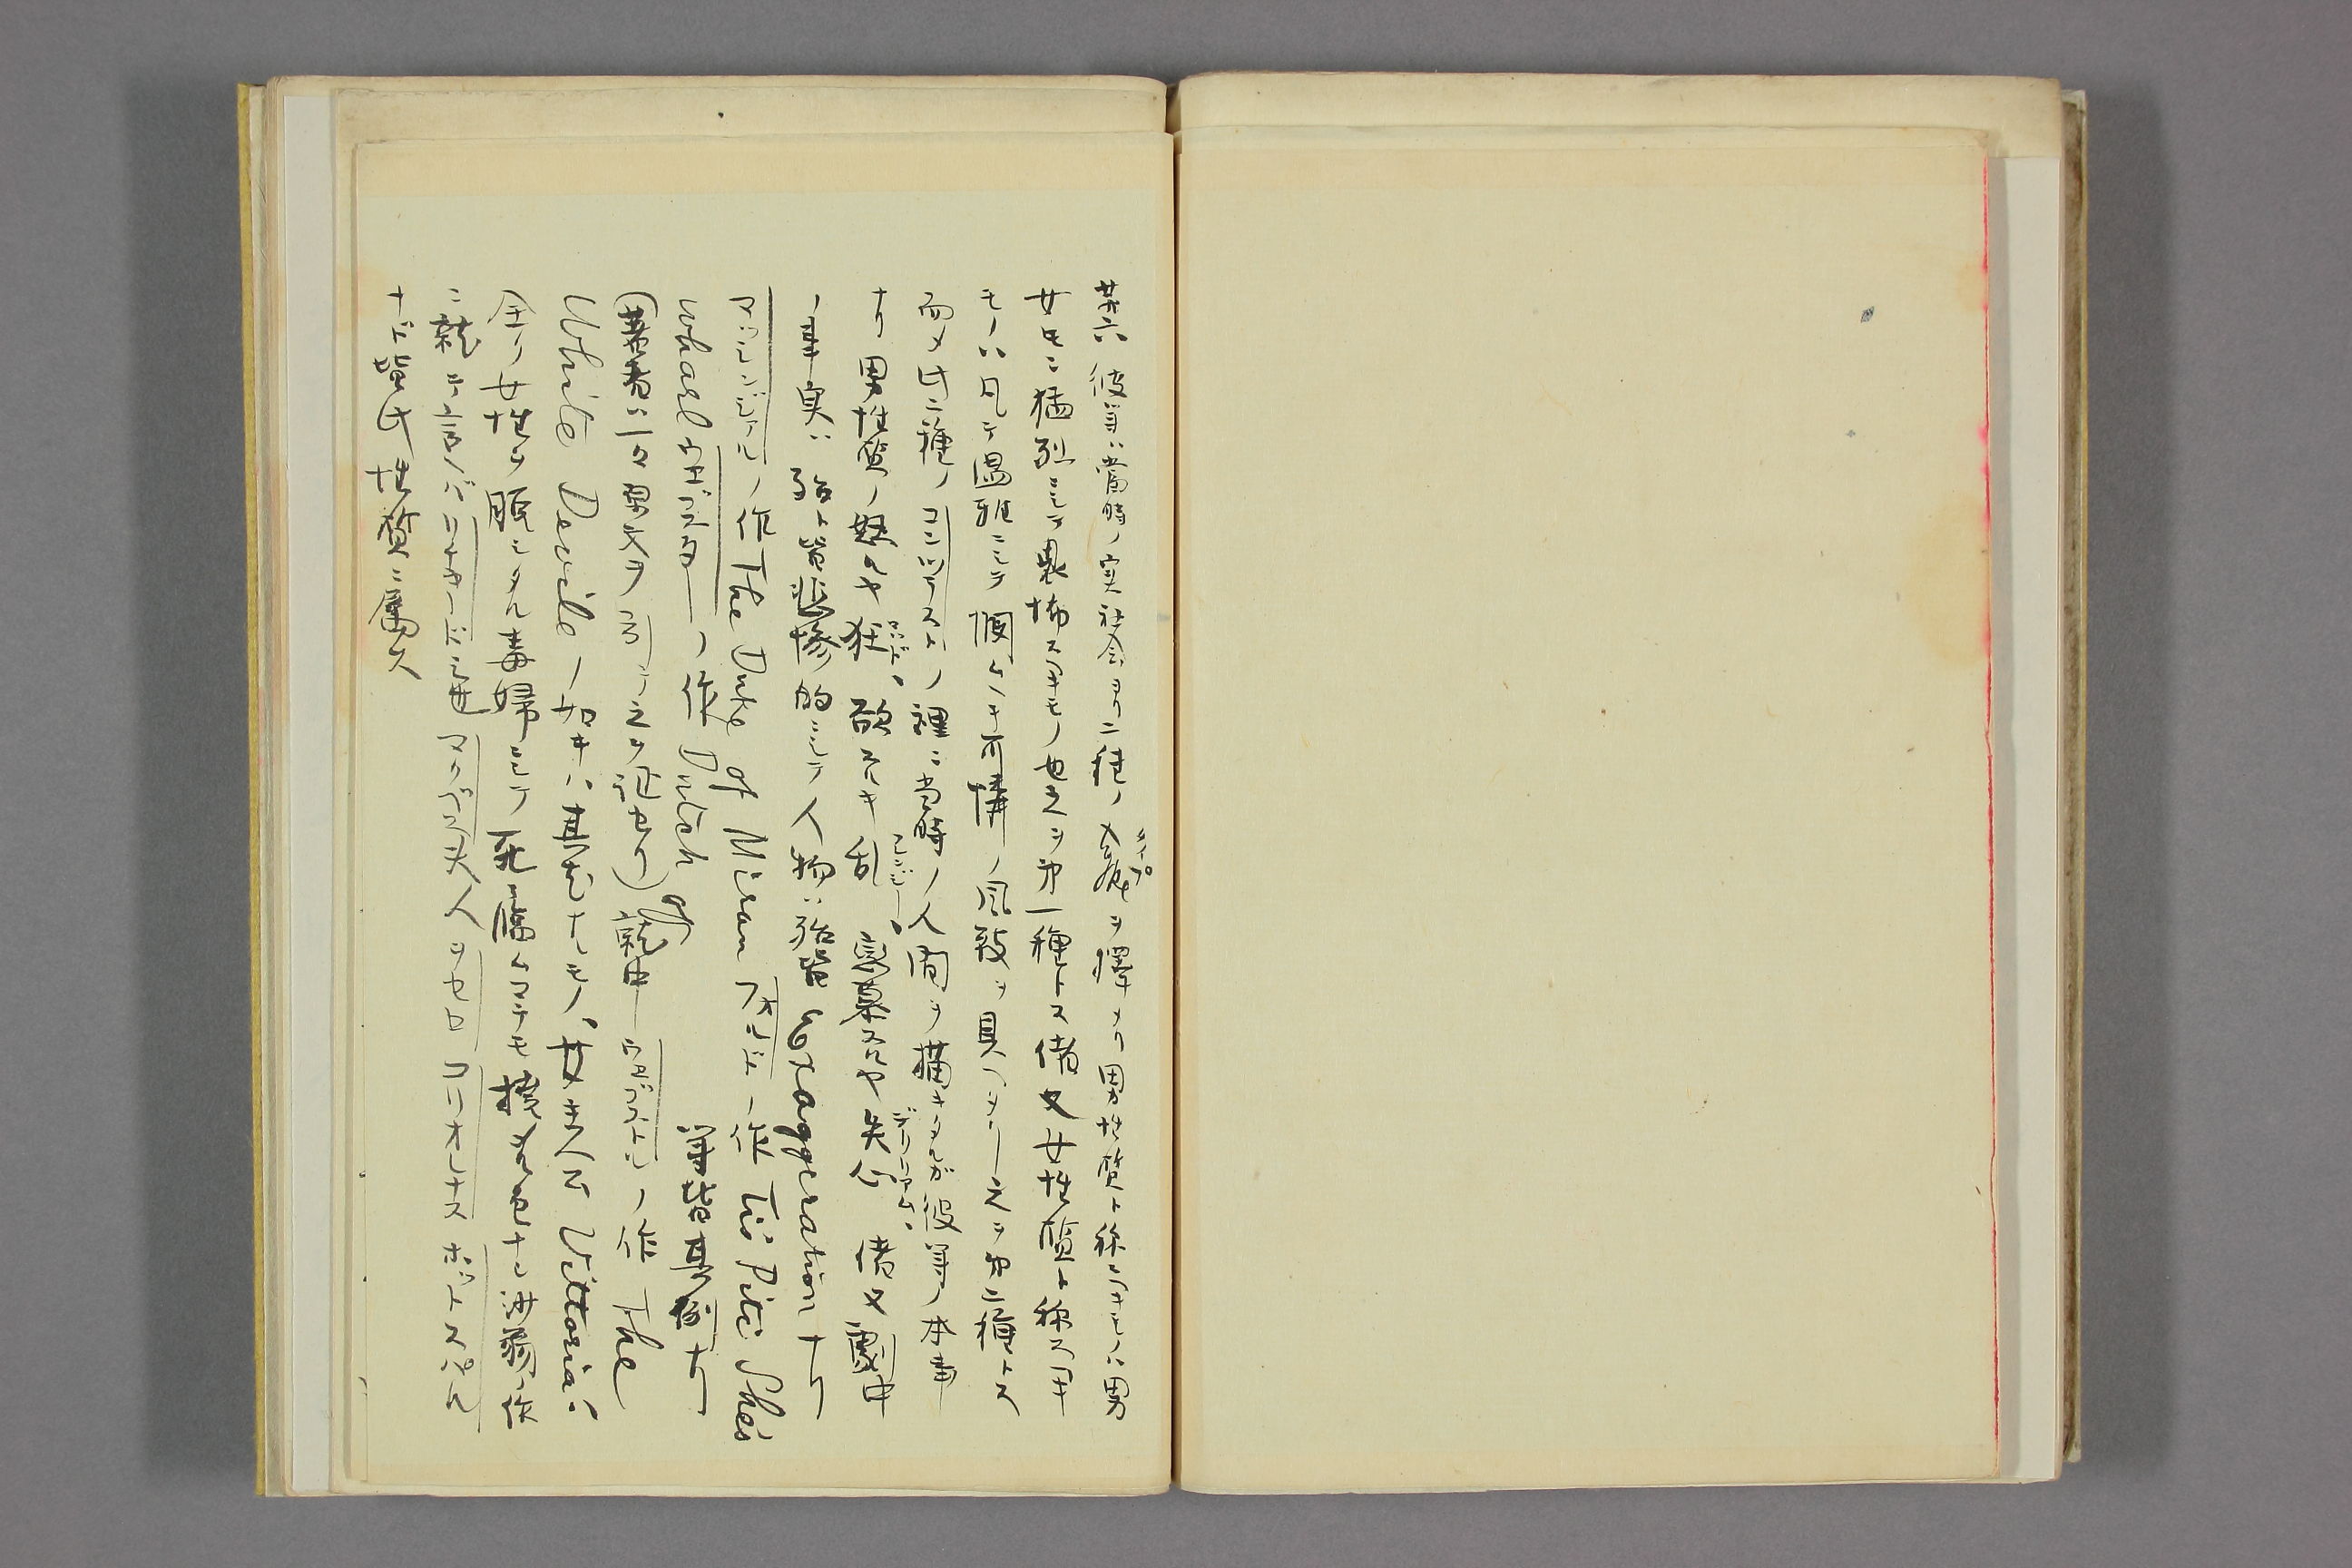 其六 彼等ハ當時ノ実社会ヨリ二種ノ人癖ヲ擇メリ男性質ト称スヘキモノハ男
女共ニ猛烈ニシテ畏怖スヘキモノ也之ヲ第一種トス偖又女性質ト称スヘキ
モノハ凡テ温雅ニシテ憫ムヘキ可憐ノ風致ヲ具ヘタリ之ヲ第二種トス
而メ此二種ノコンツラストノ裡ニ当時ノ人間ヲ描キタルガ彼等ノ本事
ナリ 男性質ノ怒ルヤ狂、欲スルヤ乱 恋慕スルヤ失心 偖又劇中
ノ事実ハ殆ト皆悲惨的ニシテ人物ハ殆皆 Exaggeration ナリ
マッシンジアルノ作 The Duke of Milan フォルドノ作 'Tis Pity She's
Whore ウエブスターノ作 Dutch of 等皆其例ナリ
(著者ハ一々原文ヲ引テ之ヲ証セリ) 就中ウエブストルノ作 The
White Devil ノ如キハ其尤ナルモノ、女主人公 Vittoria ハ
全ク女性ヲ脱シタル毒婦ニシテ死ニ臨ムマテモ撓メル色ナシ沙翁ノ作
ニ就テ言ハバリチャードミ世 マクベス夫人 ヲセロ コリオレナス ホットスパル
ナド皆此性質ニ属ス